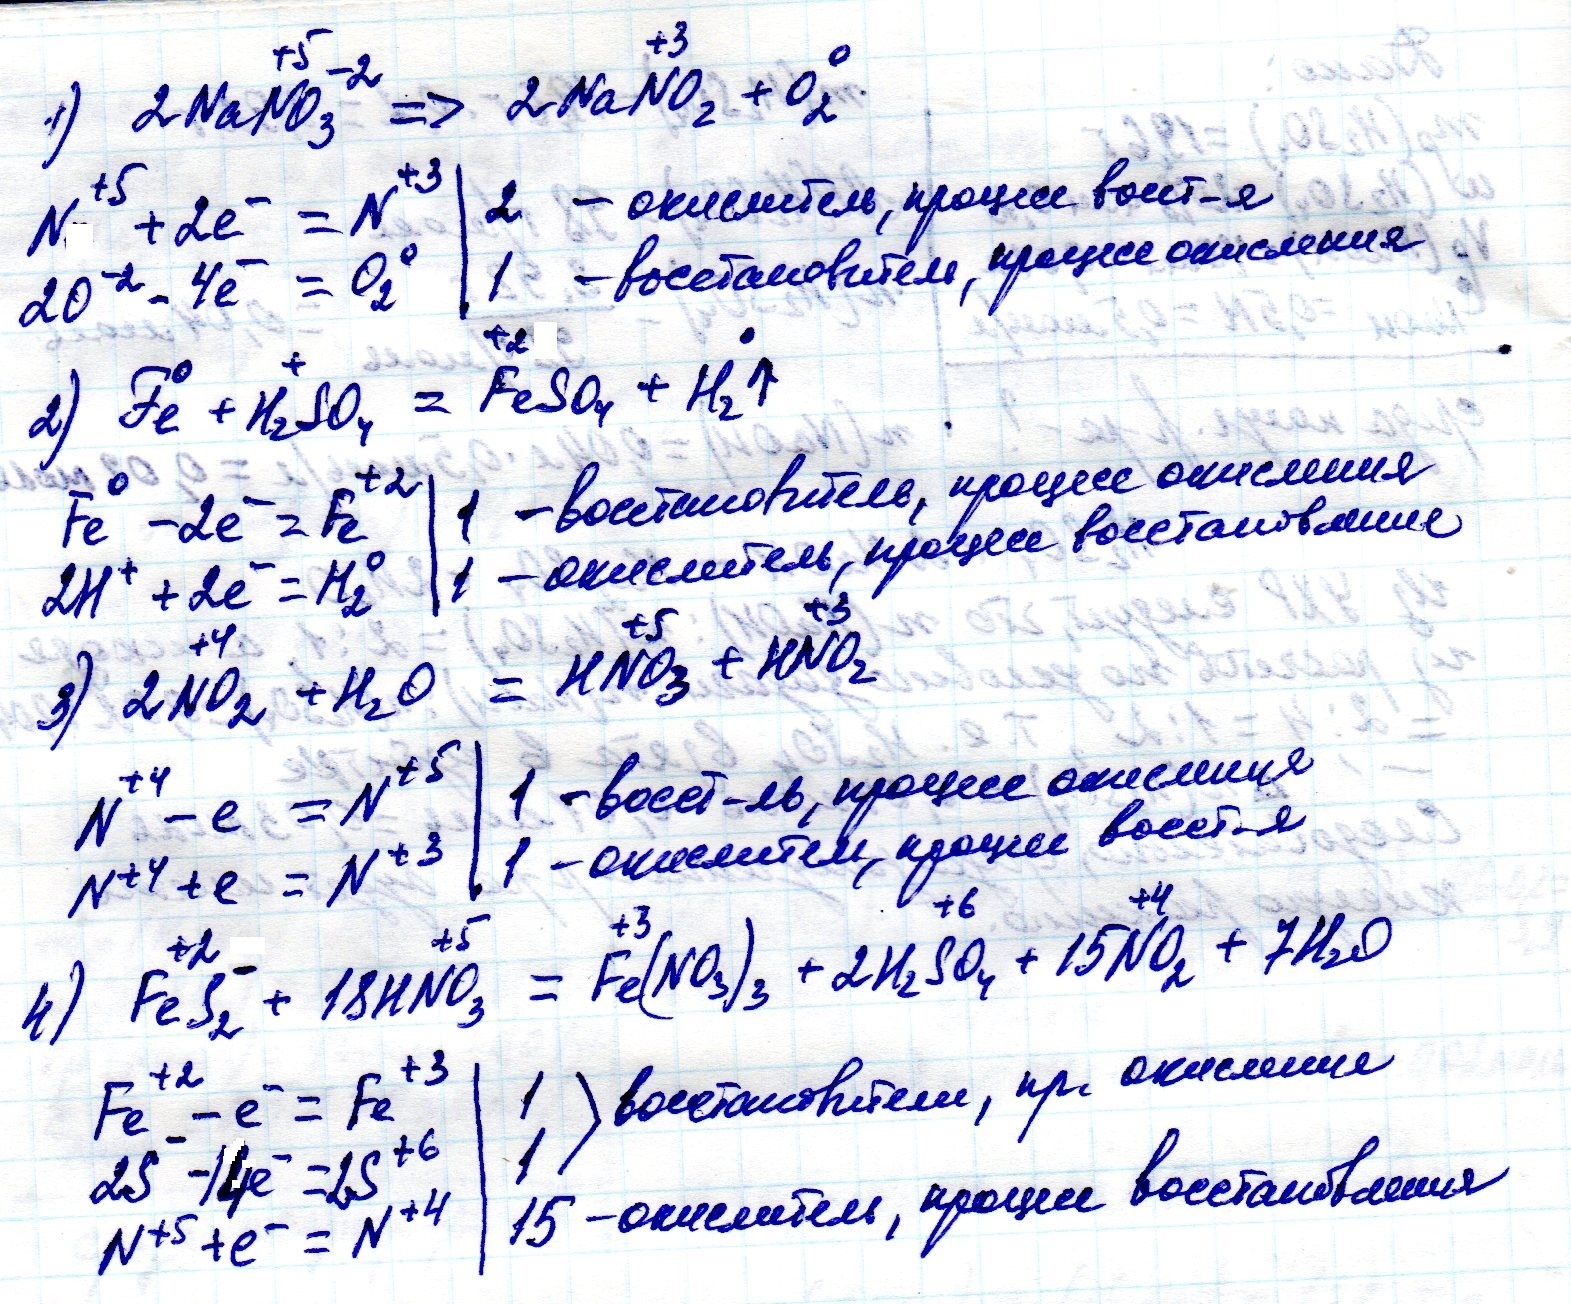 1) 2NaN⁺⁵O₃⁻² => 2NaN⁺³O₂ + O₂⁰
N⁺⁵ + 2e⁻ = N⁺³ | 2 – окислитель, процесс восст-я
2O⁻² - 4e⁻ = O₂⁰ | 1 – восстановитель, процесс окисления
2) Fe⁰ + H₂⁺SO₄ = Fe⁺²SO₄ + H₂⁰↑
Fe⁰ – 2e⁻ = Fe⁺² | 1 – восстановитель, процесс окисления
2H⁺ + 2e⁻ = H₂⁰ | 1 – окислитель, процесс восстановление
3) 2N⁺⁴O₂ + H₂O = HN⁺⁵O₃ + HN⁺³O₂
N⁺⁴ – e = N⁺⁵ | 1 – восст-ль, процесс окисления
N⁺⁴ + e = N⁺³ | 1 – окислитель, процесс восст-я
4) Fe⁺²S₂⁻ + 18HN⁺⁵O₃ = Fe⁺³(NO₃)₃ + 2H₂S⁺⁶O₄ + 15N⁺⁴O₂ + 7H₂O
Fe⁺² – e⁻ = Fe⁺³ | 1 ) восстановители, пр. окисление
2S⁻ – 14e⁻ = 2S⁺⁶ | 1
N⁺⁵ + e⁻ = N⁺⁴ | 15 – окислитель, процесс восстановления